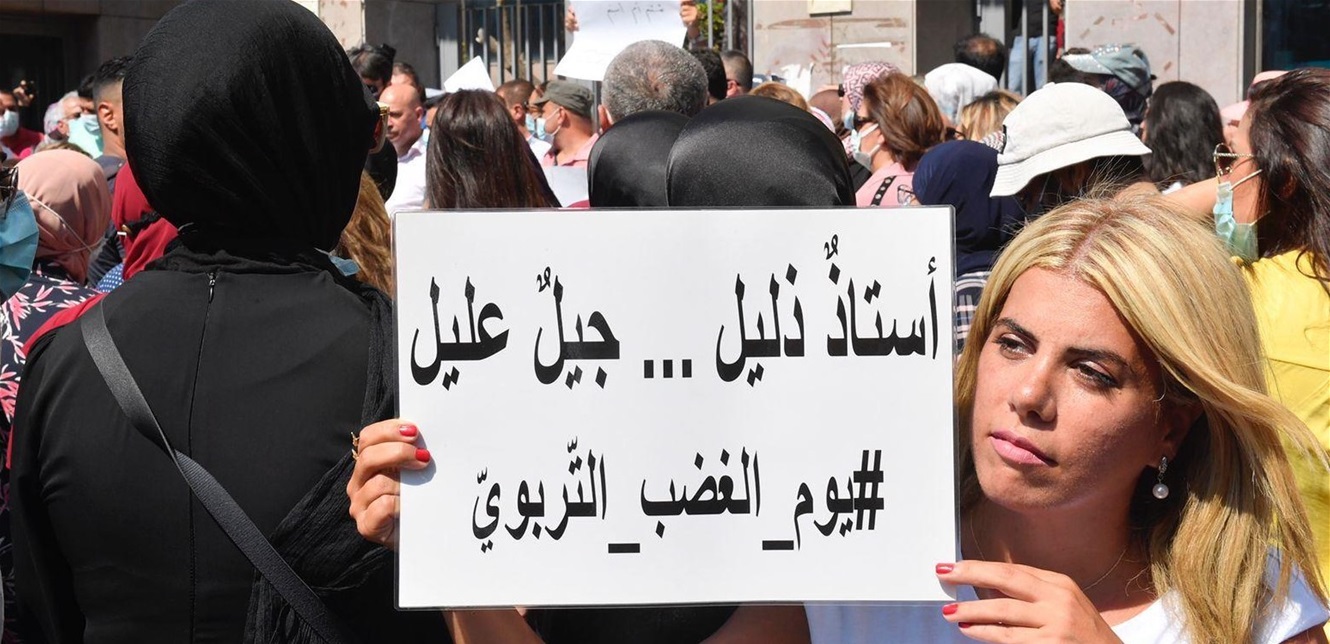 أستاذٌ ذليل ... جيلٌ عليل
#يوم_الغضب_التّربويّ